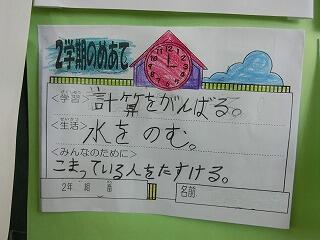 2学期のめあて
<学習>計算をがんばる。
<生活>水をのむ。
<みんなのために>
こまっている人をたすける。
2年 組 番 名前